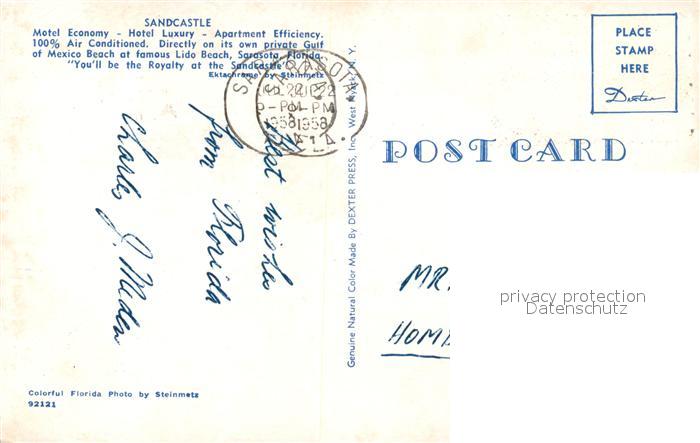 SANDCASTLE
Motel Economy - Hotel Luxury - Apartment Efficiency.
100% Air Conditioned. Directly on its own private Gulf
of Mexico Beach at famous Lido Beach, Sarasota, Florida.
"You'll be the Royalty at the Sandcastle"
Ektachrome by Steinmetz
SARASOTA
22
PM
1958
FLA.
Best wishes
from Florida
Charles J. Meder
Colorful Florida Photo by Steinmetz
92121
Genuine Natural Color Made By DEXTER PRESS, Inc. West Nyack, N. Y.
PLACE
STAMP
HERE
Dexter
POST CARD
MR.
HOM
privacy protection
Datenschutz